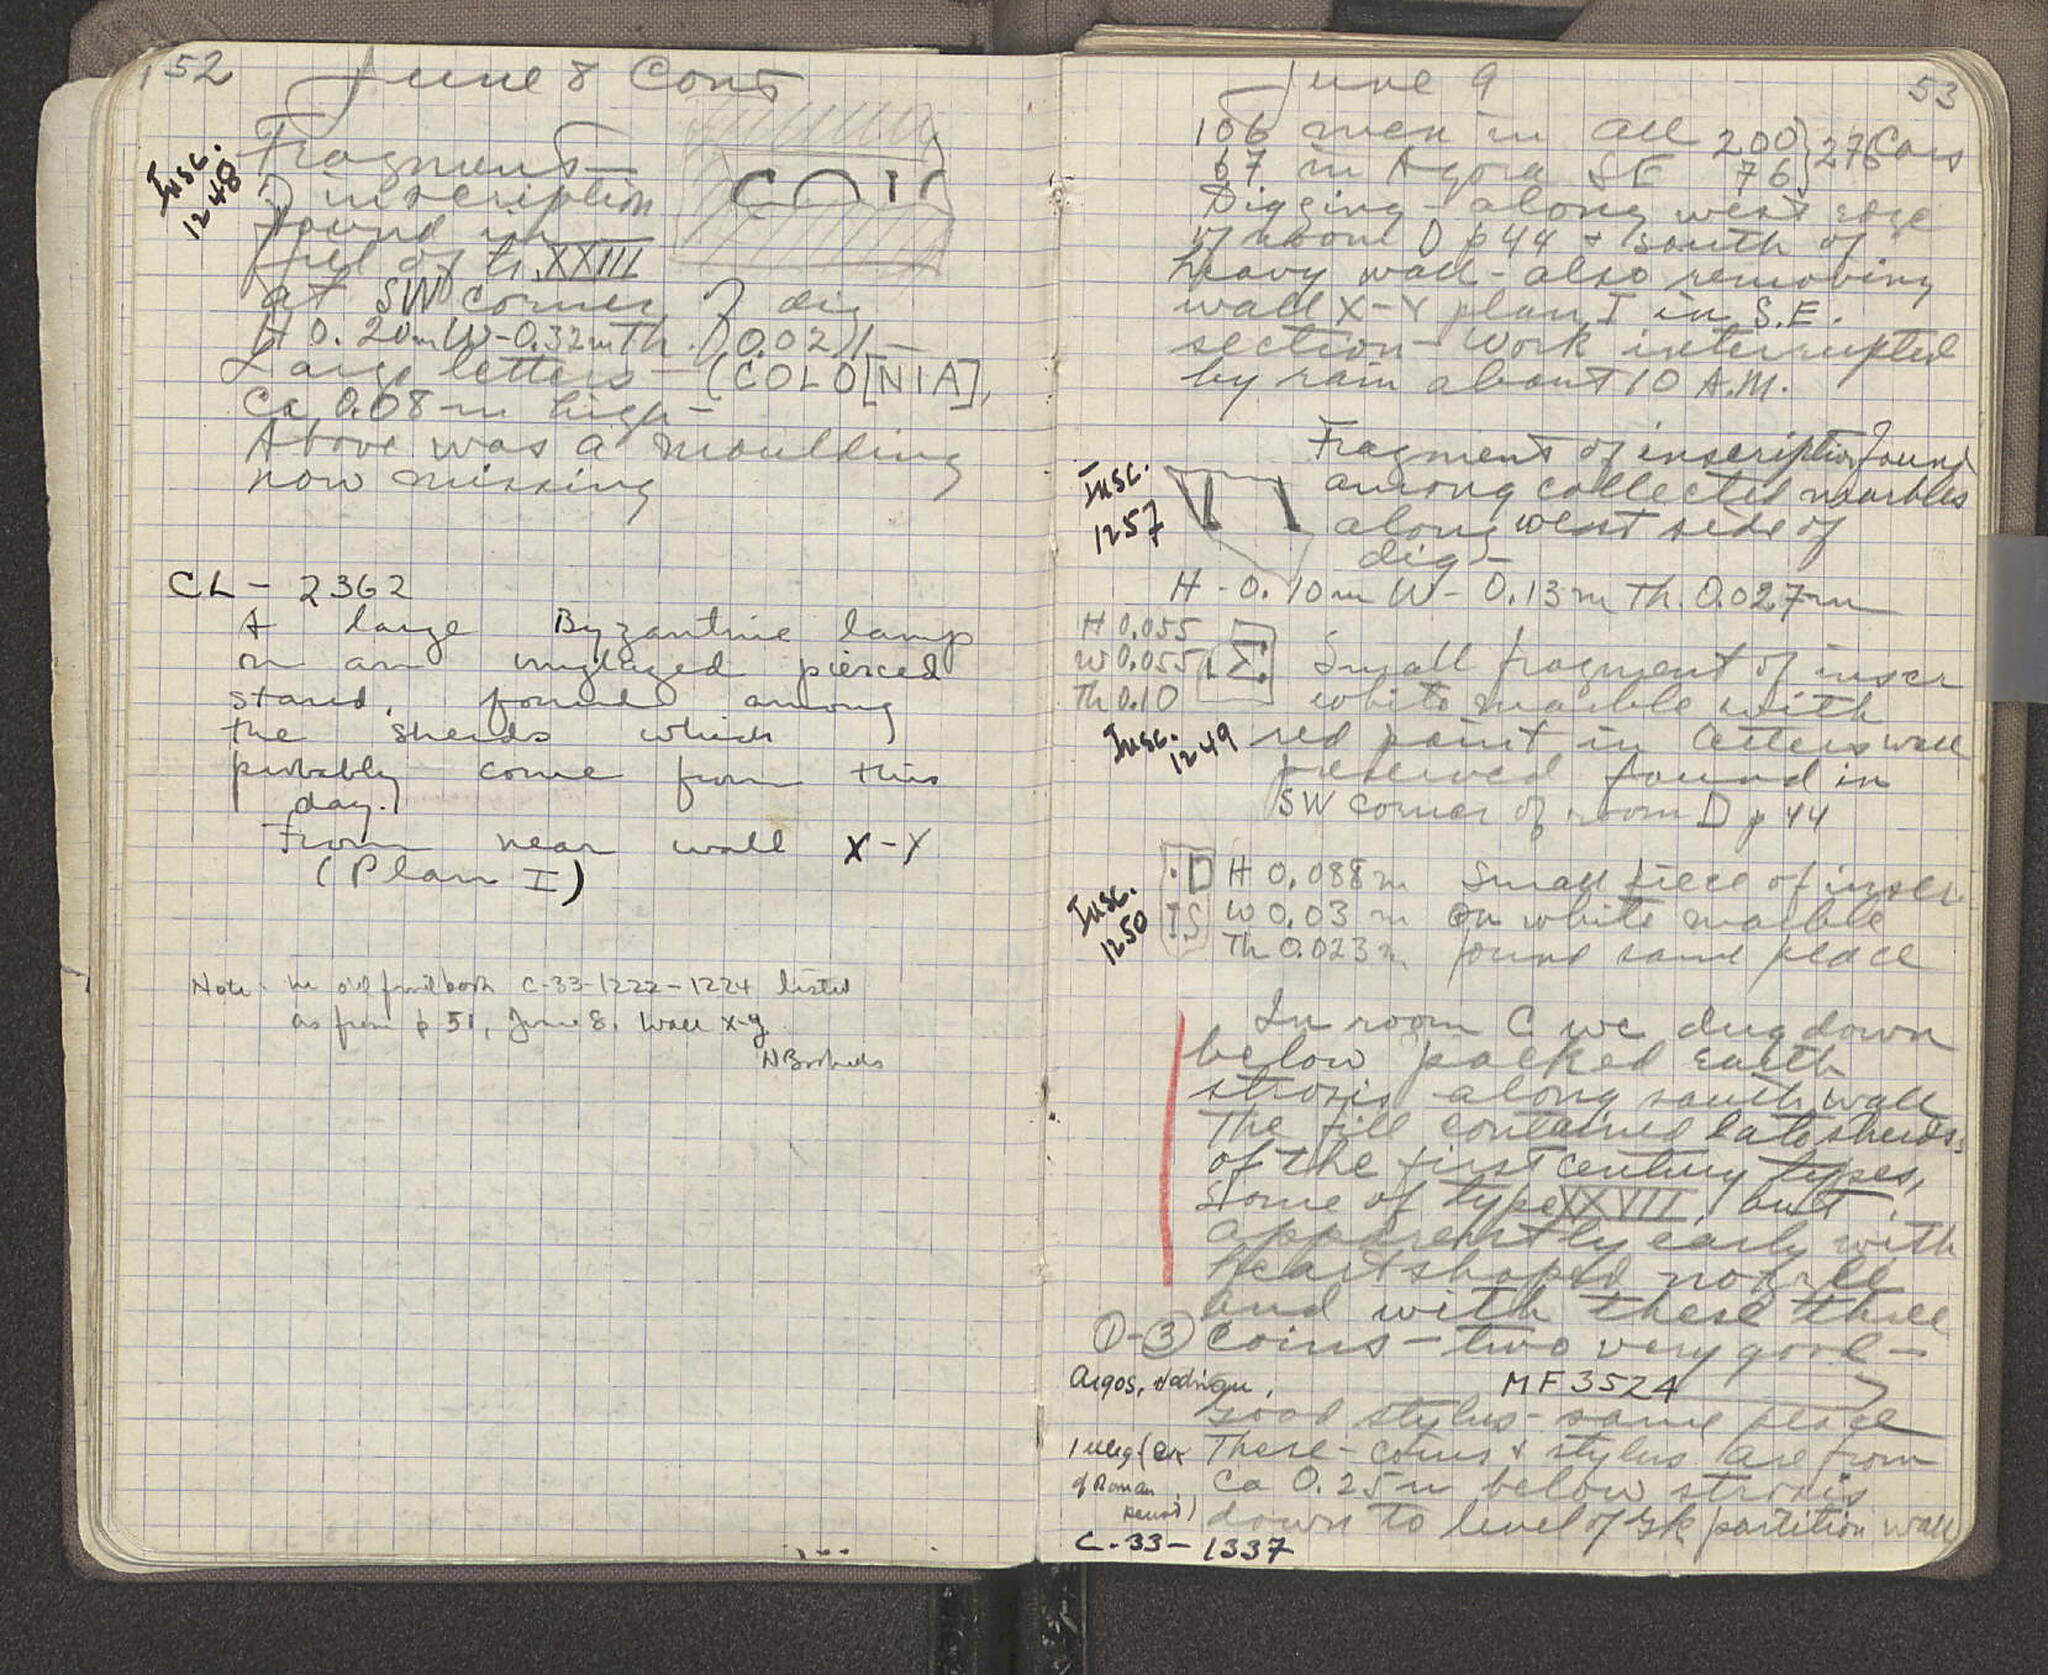 52
June 8 Cont
Insc.
1248
Fragment
of inscription
found in
fill of tr. XXIII
at SW corner of dig
H 0.20m W-0.32m Th. 0.02
Large letters - (COLO[NIA],
Ca 0.08 m high -
Above was a moulding
now missing
COL
CL - 2362
A large Byzantine lamp
on an unglazed pierced
stand, found among
the sherds which
probably come from this
day.
From near wall X-Y
(Plan I)
Note - in old findbook C-33-1222-1224 listed
as from p 51, June 8. Wall x-y
53
June 9
106 men in all 200 } 276 Cars
67 in Agora SE 76
Digging - along west edge
of room D p 44 + south of
heavy wall - also removing
wall X-Y plan I in S.E.
section - Work interrupted
by rain about 10 A.M.
Insc.
1257
Fragment of inscription found
among collected marbles
along west side of
dig -
H - 0.10m W - 0.13m Th. 0.027m
H 0.055
W 0.055
Th 0.10
Σ
Insc.
1249
Small fragment of inscr
white marble with
red paint in letters well
preserved found in
SW corner of room D p 44
Insc.
1250
· D
IS
H 0.088m Small piece of inscr.
W 0.03 m on white marble
Th 0.023m found same place
In room C we dug down
below packed earth
strosis along south wall
The fill contained late sherds
of the first century types,
Some of type XXVIII, but
apparently early with
heart shaped nozzle
and with these three
①-③ coins - two very good -
Argos, Hadrian, MF 3524
good stylus - same place
1 illeg (
of Roman
period)
These - coins + stylus are from
Ca 0.25 m below strosis
down to level of Gk partition wall
C-33-1337